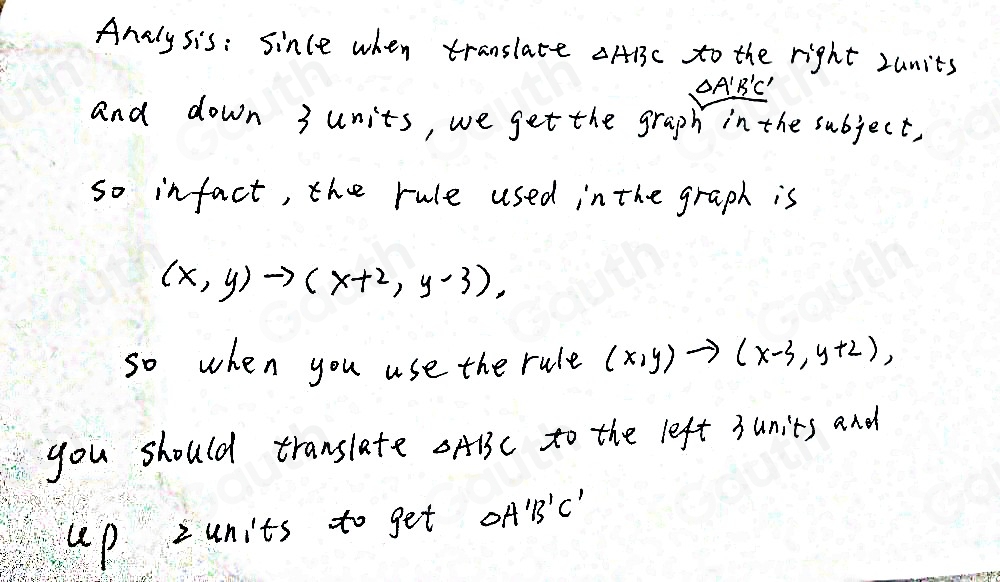 Analysis: Since when translate △ABC to the right 2units
△A'B'C'
and down 3 units, we get the graph in the subject,
so infact, the rule used in the graph is
(x, y) → (x+2, y-3),
so when you use the rule (x,y) → (x-3, y+2),
you should translate △ABC to the left 3 units and
up 2 units to get △A'B'C'